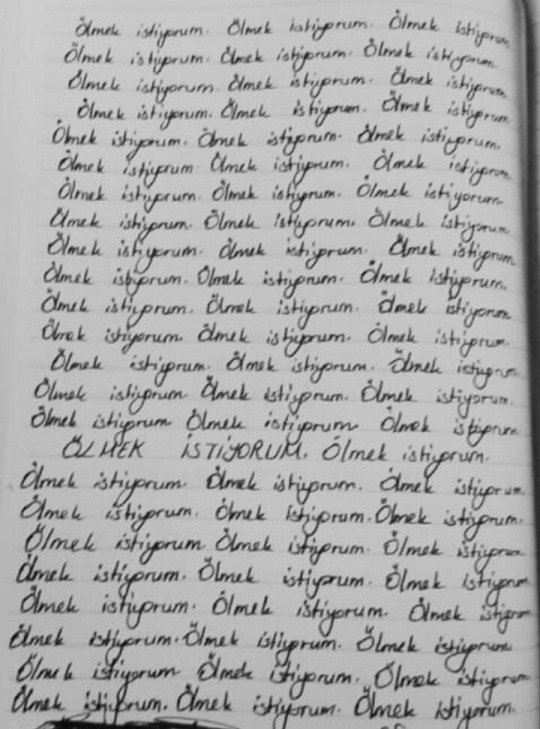 Ölmek istiyorum. Ölmek istiyorum. Ölmek istiyorum
Ölmek istiyorum. Ölmek istiyorum. Ölmek istiyorum.
Ölmek istiyorum. Ölmek istiyorum. Ölmek istiyorum
Ölmek istiyorum. Ölmek istiyorum. Ölmek istiyorum
Ölmek istiyorum. Ölmek istiyorum. Ölmek istiyorum.
Ölmek istiyorum Ölmek istiyorum. Ölmek istiyorum
Ölmek istiyorum. Ölmek istiyorum. Ölmek istiyorum
Ölmek istiyorum. Ölmek istiyorum. Ölmek istiyorum
Ölmek istiyorum. Ölmek istiyorum. Ölmek istiyorum
Ölmek istiyorum. Ölmek istiyorum. Ölmek istiyorum.
Ölmek istiyorum. Ölmek istiyorum. Ölmek istiyorum
Ölmek istiyorum. Ölmek istiyorum. Ölmek istiyorum.
Ölmek istiyorum. Ölmek istiyorum. Ölmek istiyorum
Ölmek istiyorum. Ölmek istiyorum. Ölmek istiyorum.
Ölmek istiyorum Ölmek istiyorum Ölmek istiyorum
ÖLMEK İSTİYORUM. Ölmek istiyorum.
Ölmek istiyorum. Ölmek istiyorum. Ölmek istiyorum
Ölmek istiyorum. Ölmek istiyorum. Ölmek istiyorum.
Ölmek istiyorum. Ölmek istiyorum. Ölmek istiyorum
Ölmek istiyorum. Ölmek istiyorum. Ölmek istiyorum
Ölmek istiyorum. Ölmek istiyorum. Ölmek istiyorum
Ölmek istiyorum. Ölmek istiyorum. Ölmek istiyorum
Ölmek istiyorum Ölmek istiyorum. Ölmek istiyorum
Ölmek istiyorum. Ölmek istiyorum. Ölmek istiyorum.